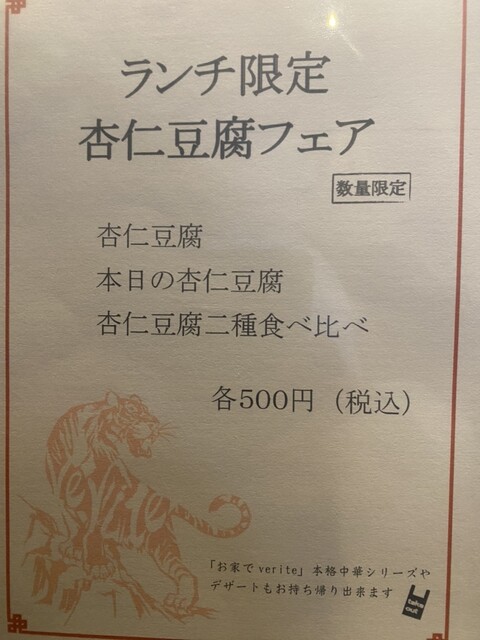 ランチ限定
杏仁豆腐フェア
数量限定
杏仁豆腐
本日の杏仁豆腐
杏仁豆腐二種食べ比べ
各500円（税込）
「お家でverite」本格中華シリーズや
デザートもお持ち帰り出来ます
take
out